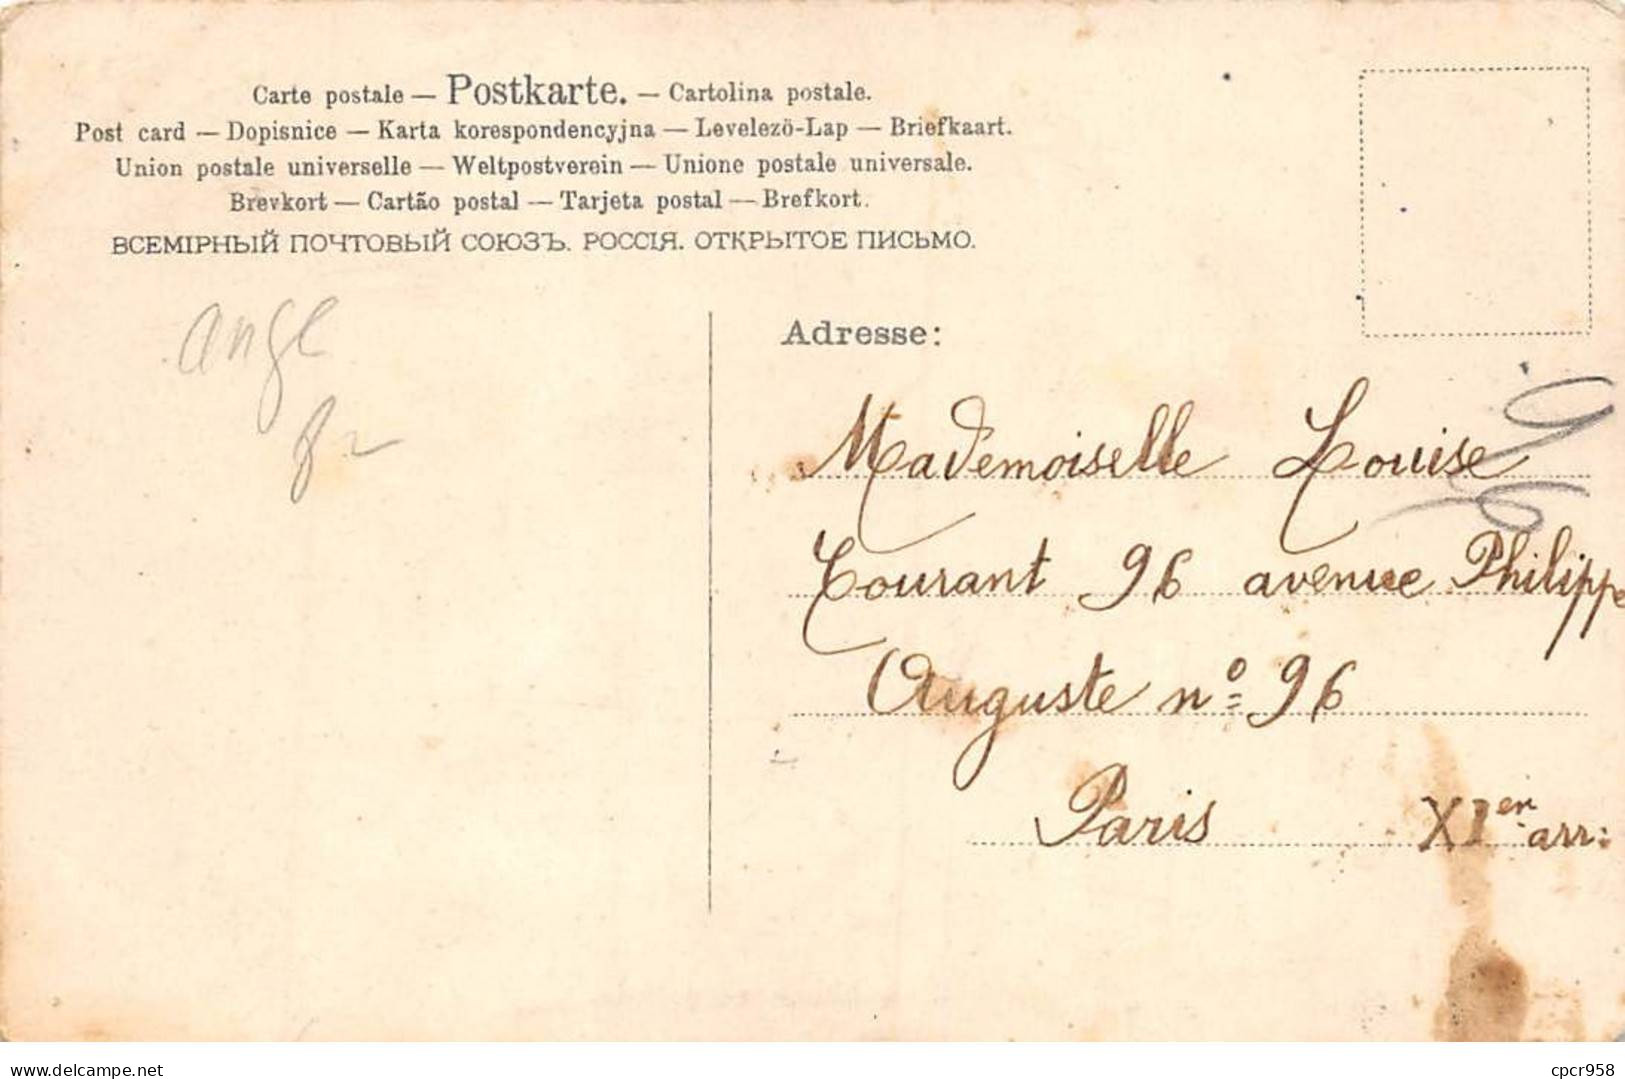 Carte postale — Postkarte. — Cartolina postale.
Post card — Dopisnice — Karta korespondencyjna — Levelezö-Lap — Briefkaart.
Union postale universelle — Weltpostverein — Unione postale universale.
Brevkort — Cartão postal — Tarjeta postal — Brefkort.
ВСЕМІРНЫЙ ПОЧТОВЫЙ СОЮЗЪ. РОССІЯ. ОТКРЫТОЕ ПИСЬМО.
ange
Adresse:
Mademoiselle Louise
Courant 96 avenue Philippe
Auguste nº 96
Paris XIen arr:
www.delcampe.net
cpcr958